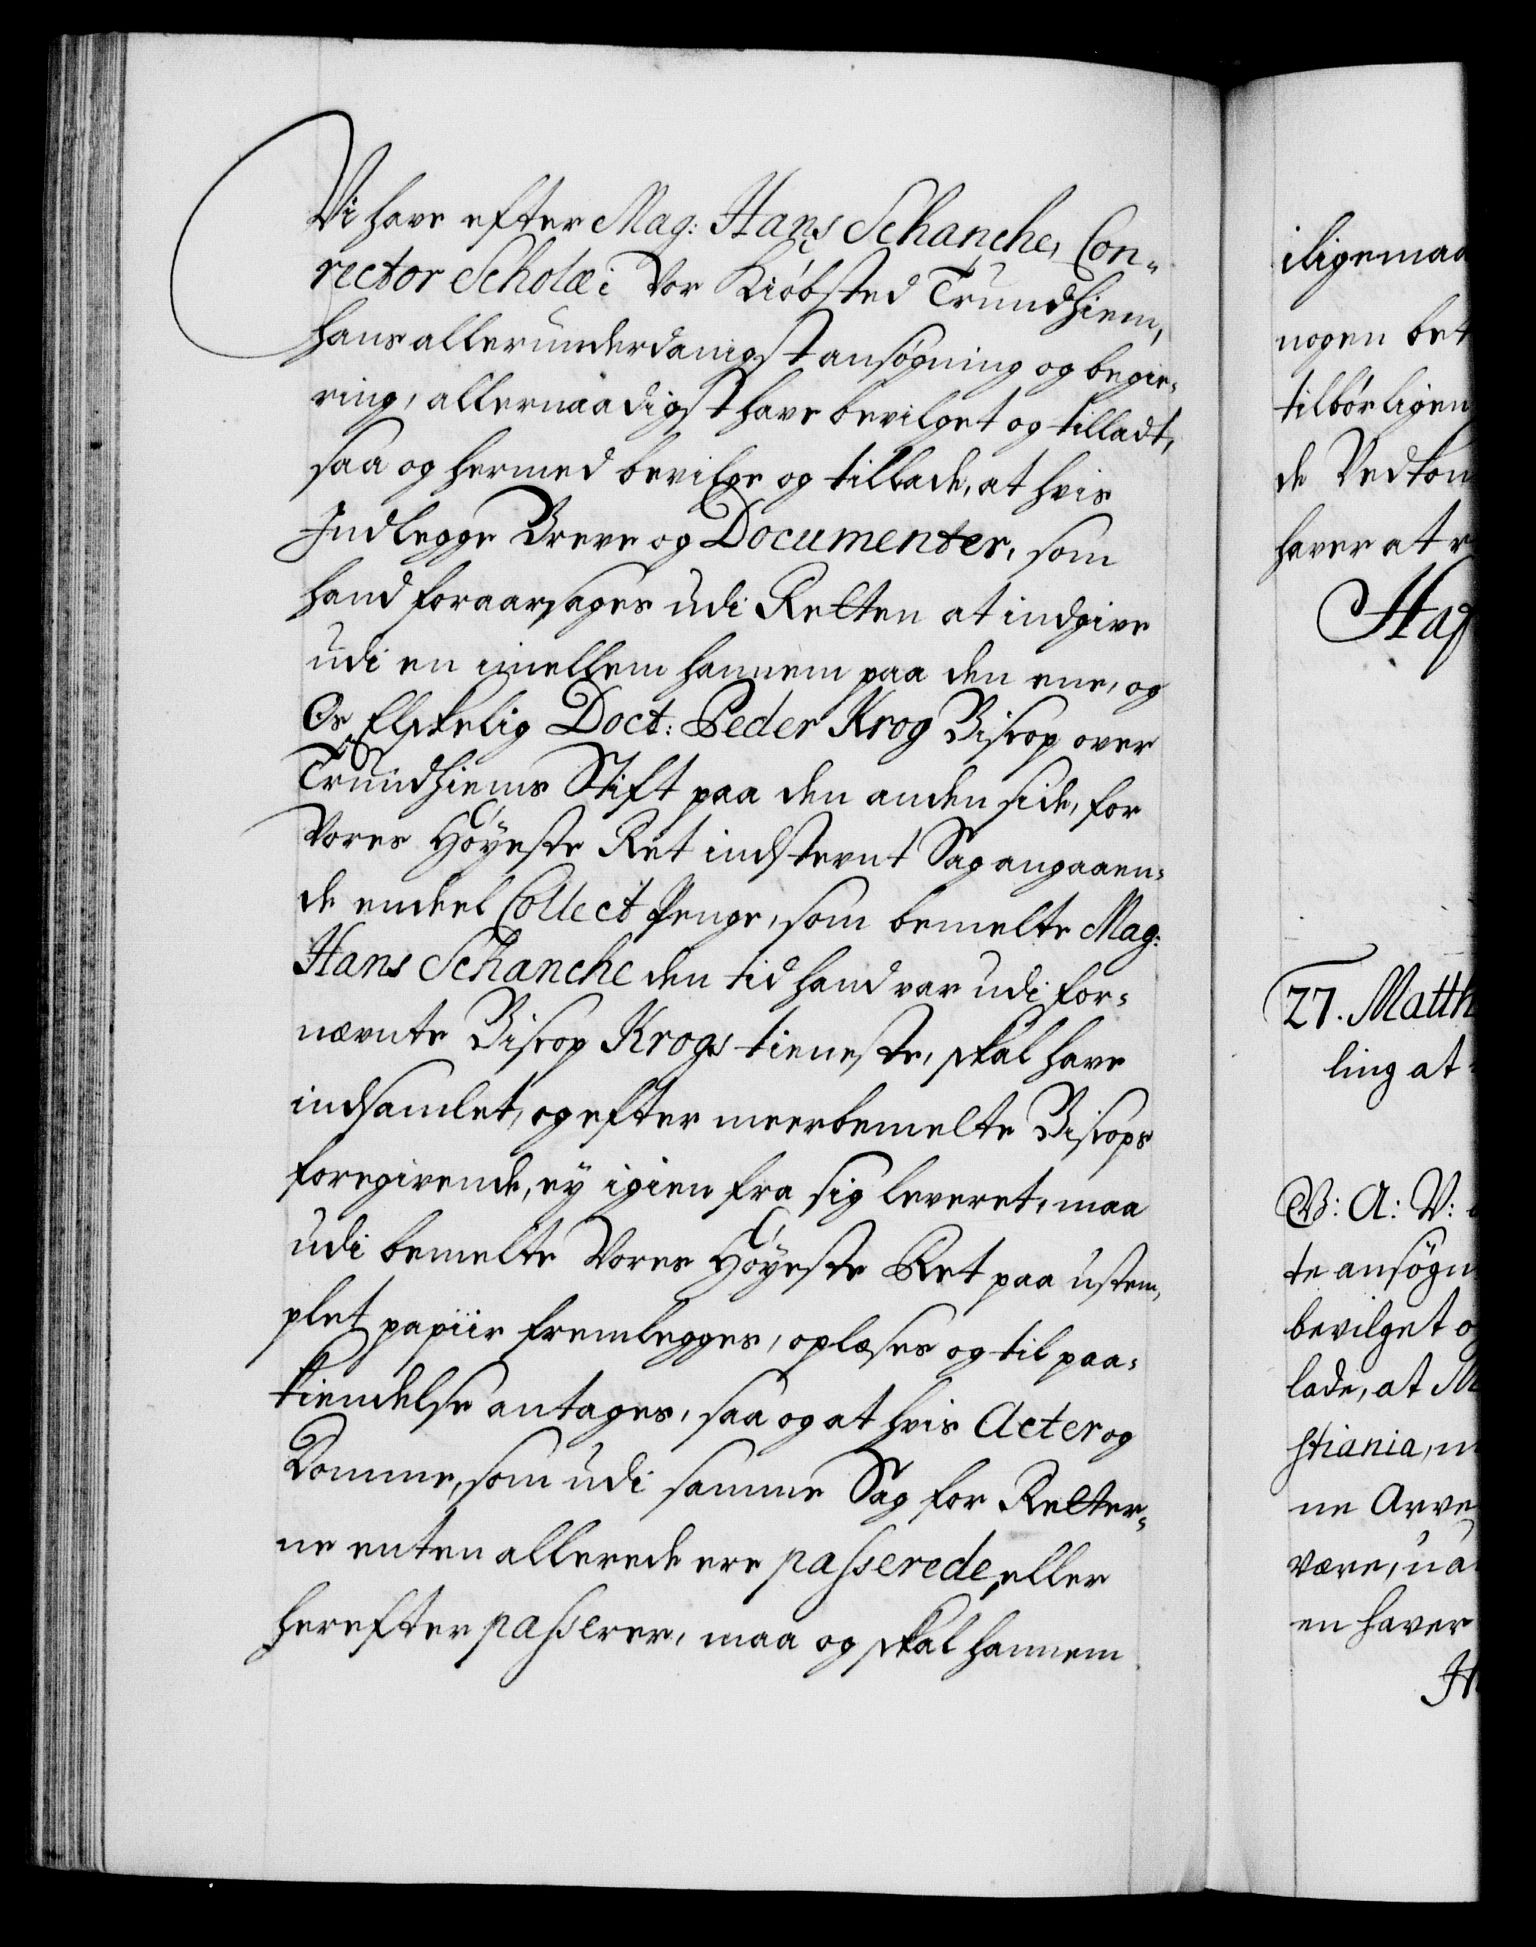 Vi have efter Mag: Hans Schanche, Con-
rector Scholæ i Vor Kiöbsted Trundhiem,
hans allerunderdanigst ansøgning og begie-
ring, allernaadigst have bevilget og tilladt,
saa og hermed bevilge og tillade, at hvis
Indlegge Breve og Documenter, som
hand foraarsages udi Retten at indgive
udi en imellem hannem paa den ene, og
Os Elskelig Doct: Peder Krog Biscop over
Trundhiems Stift paa den anden side, for
Vores Höyeste Ret indstevnt Sag angaaen-
de endeel Collect Penge, som bemelte Mag:
Hans Schanche den tid hand var udi for-
nævnte Biscop Krogs tieneste, skal have
indsamlet, og efter meerbemelte Biscops
foregivende, ey igien fra sig leveret, maa
udi bemelte Vores Höyeste Ret paa ustem-
plet papiir fremlegges, oplæses og til paa-
kiendelse antages, saa og at hvis Acter og
Domme, som udi samme Sag for Retter-
ne enten allerede ere passerede, eller
herefter passerer, maa og skal hannem
iligemaa
nogen bet
tilbörligen
de Vedkom
haver at r
Haf
27. Matth
ling at
V: A: V:
te ansögn
bevilget o
lade, at M
stiania, m
ne Arve
være, ua
en haver
H